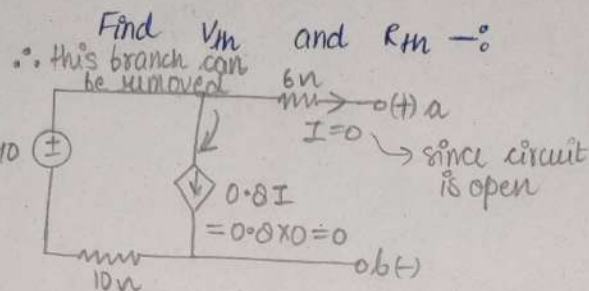 Find Vth and Rth –:
∴ this branch can
be removed
6Ω
o(+) a
I=0
since circuit
is open
10
±
0.8I
=0.8×0=0
10Ω
o b(–)